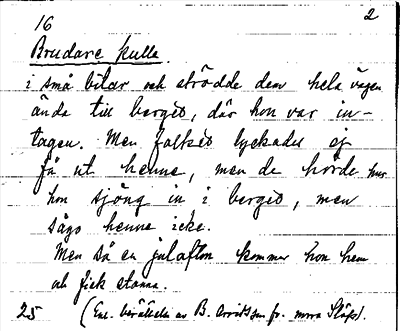 16 2
Brudare kulla.
i små bitar och strödde dem hela vägen
ända till berget, där hon var in-
tagen. Men folket lyckades ej
få ut henne, men de hörde hur
hon sjöng in i berget, men
sågo henne icke.
Men så en julafton kommer hon hem
och fick stanna.
25 (Enl. berättelse av B. Arvidsson fr. norra Släp).